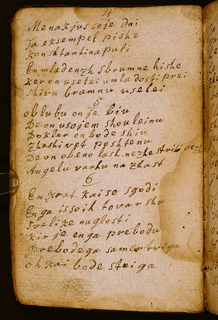 4
Menakjus soje dai
ja eksempel pishe
konshtantinapuli
En mladenzh sbrumne hishe
ker on uselei u mladosti pre
shiru brumnu uselei
5
oblubu on je biu
De on usojem shouleinu
Doklar on bode shiu
Zheshivet poshtenu
De on obeno lash. nezhe
Angelu varhu na zhast
6
Enkrat kai se sgodi
En ga issoih tovarshu
svelike naglosti
kir je en ga prebodu
Prebodega samer
oh kai bode ste i ga